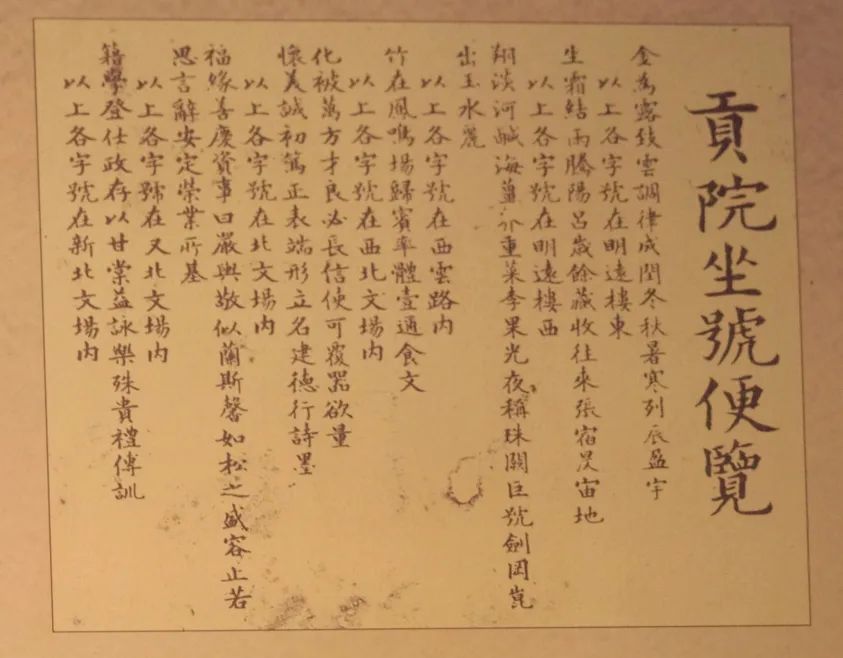 貢院坐號便覽
金為露致雲調律成閏冬秋暑寒列辰盈宇
以上各字號在明遠樓東
生霜結雨騰陽呂歲餘藏收往來張宿昃宙地
以上各字號在明遠樓西
翔淡河鹹海薑芥重菜李果光夜稱珠闕巨號劍岡崑
出玉水麗
以上各字號在西雲路内
竹在鳳鳴場歸賓率體壹通食文
以上各字號在西北文場内
化被萬方才良必長信使可覆器欲量
懷美誠初篤正表端形立名建德行詩墨
以上各字號在北文場内
福緣善慶資事曰嚴與敬似蘭斯馨如松之盛容止若
思言辭安定榮業所基
以上各字號在又北文場内
籍學登仕政存以甘棠益詠樂殊貴禮傅訓
以上各字號在新北文場内